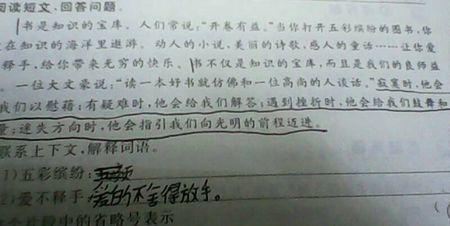 阅读短文,回答问题。
书是知识的宝库。人们常说:“开卷有益。”当你打开五彩缤纷的图书,你
在知识的海洋里遨游。动人的小说,美丽的诗歌,感人的童话……让你爱
释手,给你带来无穷的快乐。书不仅是知识的宝库,而且是我们的良师益
。一位大文豪说:“读一本好书就仿佛和一位高尚的人谈话。”寂寞时,他会
我们以慰藉;有疑难时,他会给我们解答;遇到挫折时,他会给我们鼓舞和
量;迷失方向时,他会指引我们向光明的前程迈进。
联系上下文,解释词语。
(1)五彩缤纷:
2)爱不释手:爱的不舍得放手。
中的省略号表示